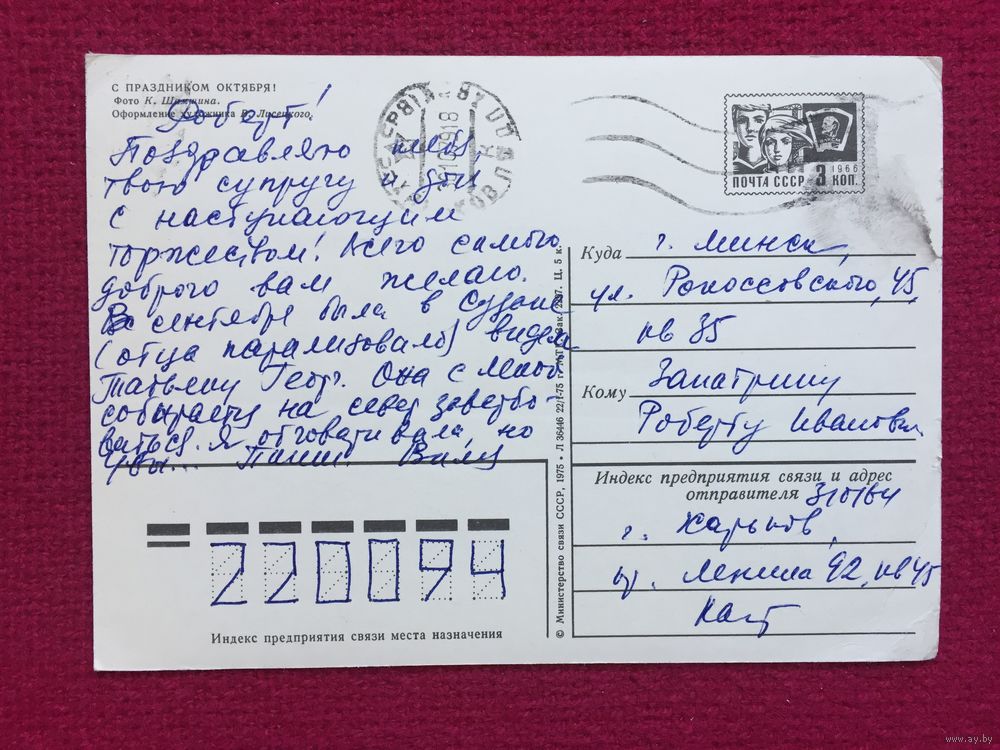 С ПРАЗДНИКОМ ОКТЯБРЯ!
Фото К. Шамшина.
Оформление художника В. Лисецкого.
Роберт!
Поздравляю тебя,
твою супругу и
с наступающим
торжеством! Всего самого
доброго вам желаю.
В сентябре была в
(отца парализовало) видела
Татьяну Геор. Она с
собирается на север завербо-
ваться. Я отговаривала, но
увы... Пиши. Валя
ПОЧТА СССР 3 КОП.
1966
Куда г. Минск,
ул. Рокоссовского, 45,
кв 35
Кому Запатрину
Роберту Иванович.
Индекс предприятия связи и адрес
отправителя
г. Харьков,
Ленина 92, кв 45
220094
Индекс предприятия связи места назначения
© Министерство связи СССР, 1975 • Л 36446 22/I-75 г. Ц. 5 к.
www.ay.by